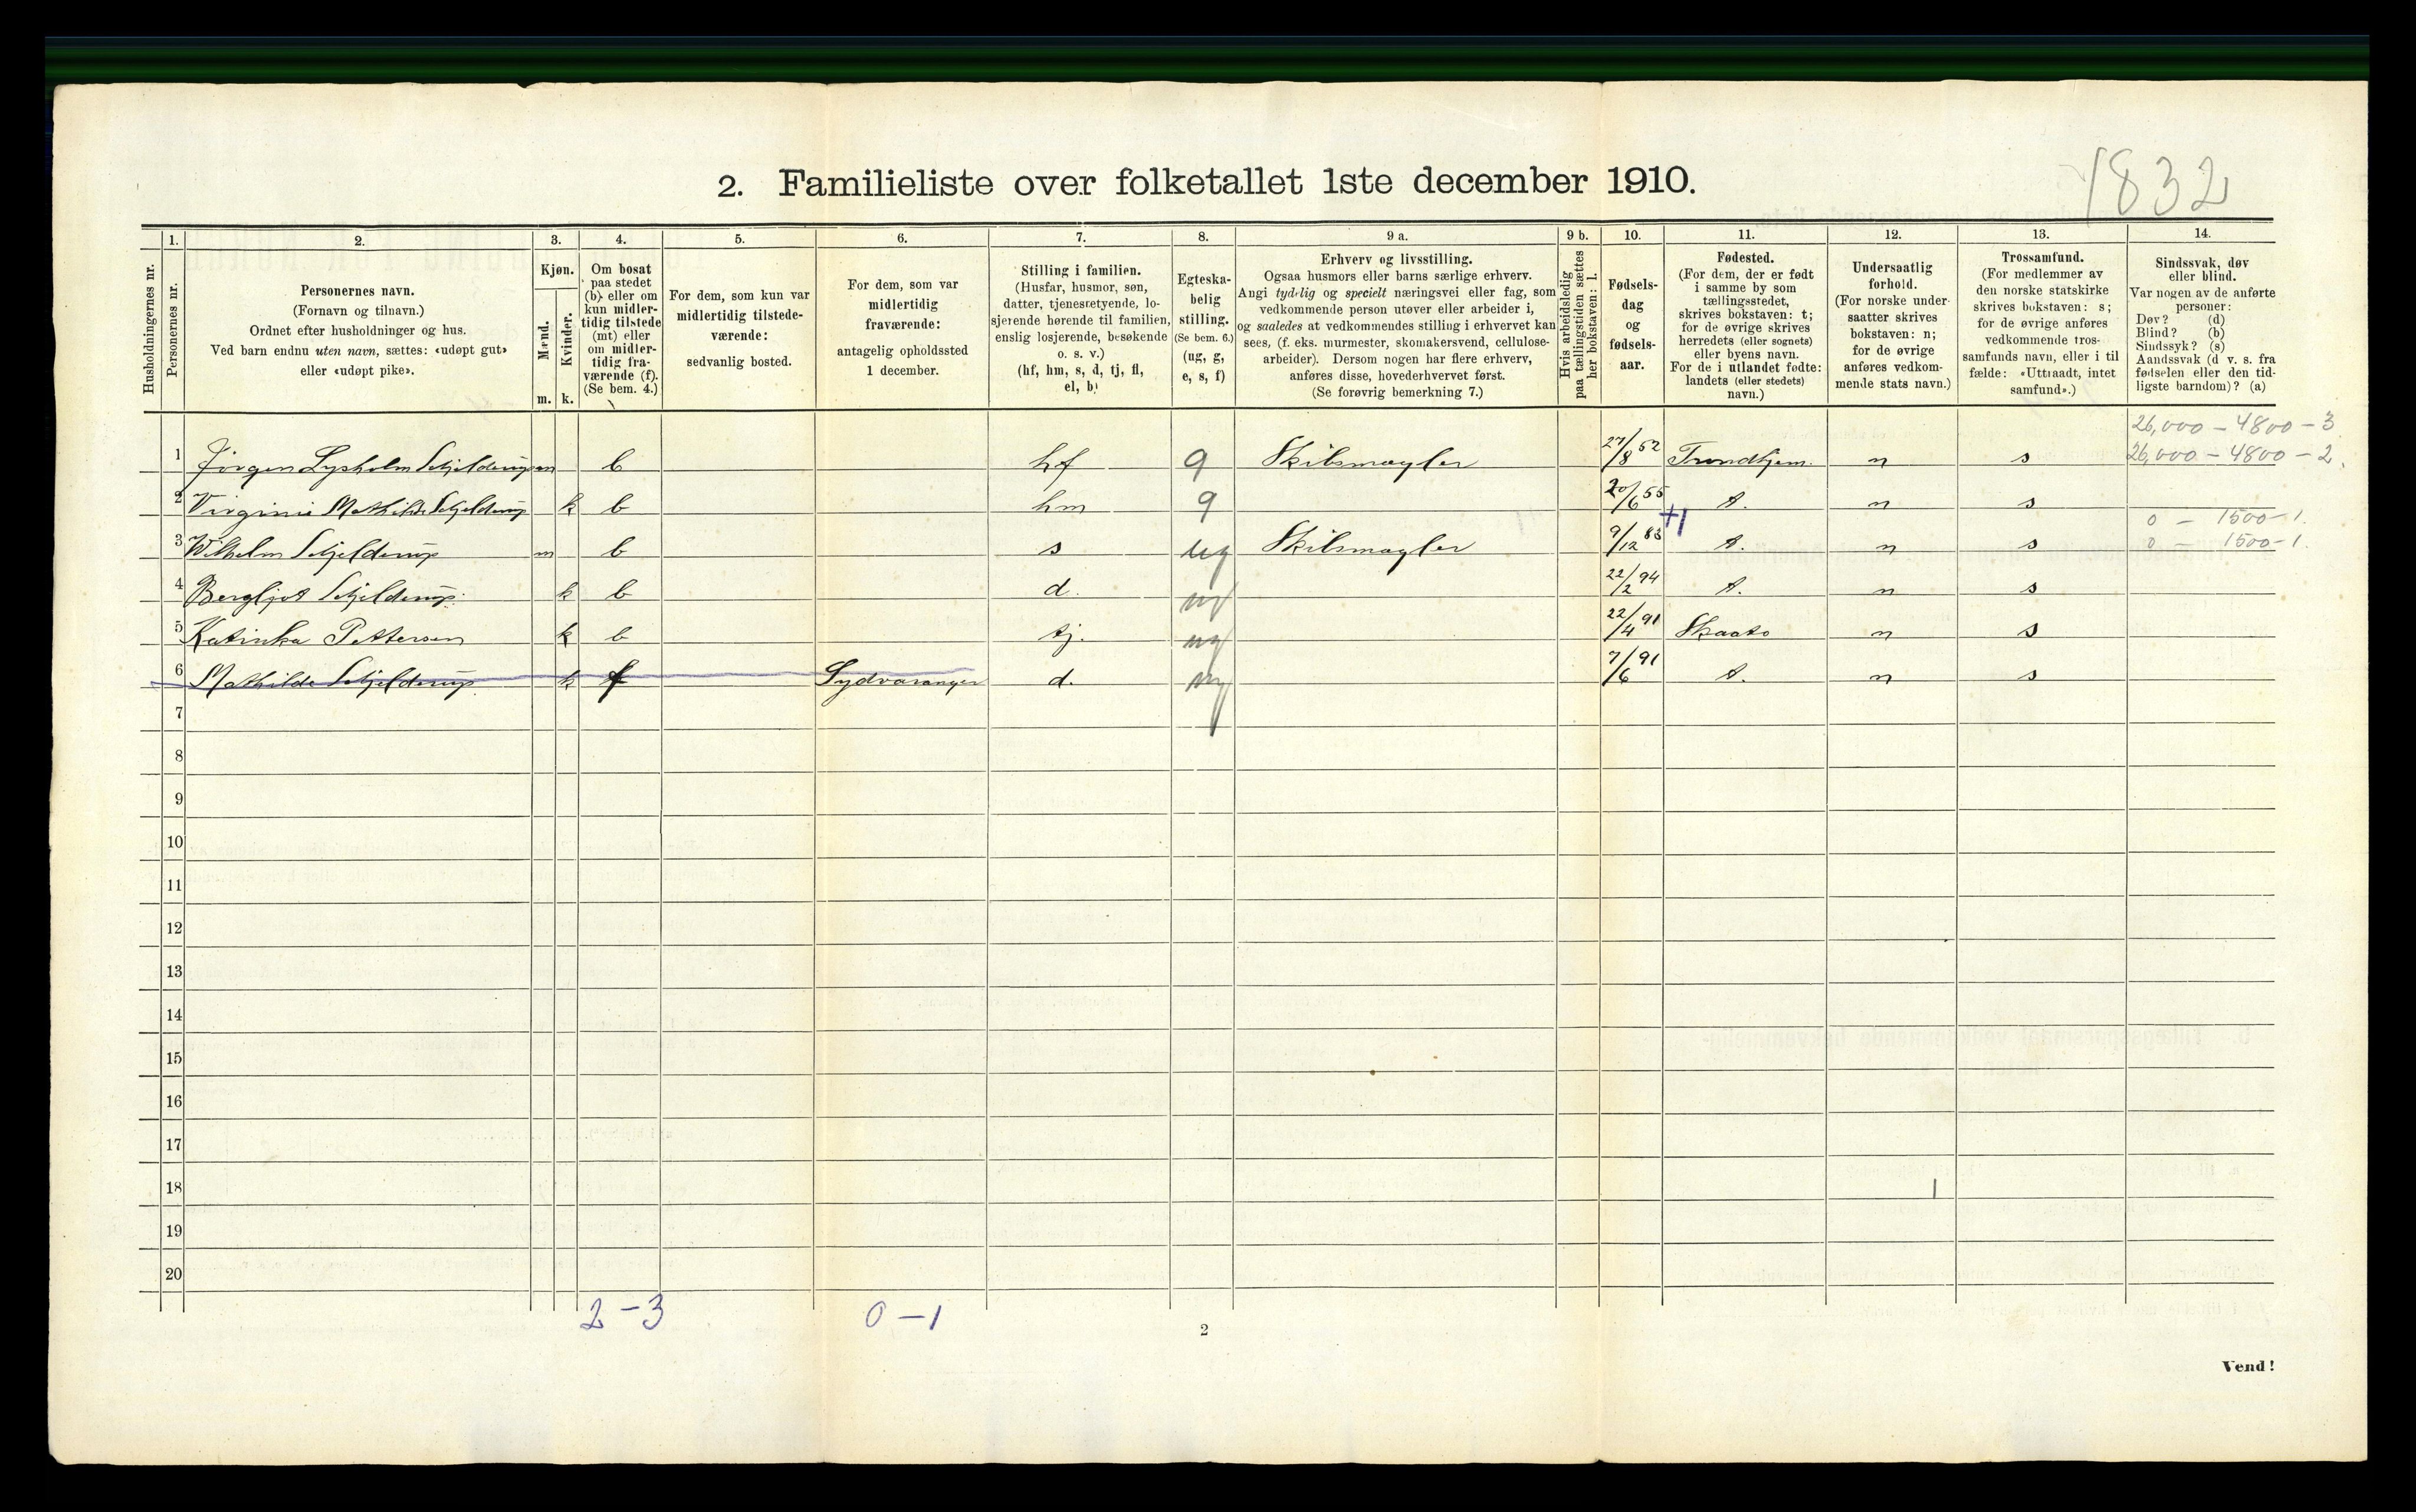 1832
2. Familieliste over folketallet 1ste december 1910.
Husholdningernes nr.
1.
Personernes nr.
2.
Personernes navn.
(Fornavn og tilnavn.)
Ordnet efter husholdninger og hus.
Ved barn endnu uten navn, sættes: «udøpt gut»
eller «udøpt pike».
3.
Kjøn.
Mænd.
Kvinder.
m. k.
4.
Om bosat
paa stedet
(b) eller om
kun midler-
tidig tilstede
(mt) eller
om midler-
tidig fra-
værende (f).
(Se bem. 4.)
5.
For dem, som kun var
midlertidig tilstede-
værende:
sedvanlig bosted.
6.
For dem, som var
midlertidig
fraværende:
antagelig opholdssted
1 december.
7.
Stilling i familien.
(Husfar, husmor, søn,
datter, tjenestetyende, lo-
sjerende hørende til familien,
enslig losjerende, besøkende
o. s. v.)
(hf, hm, s, d, tj, fl,
el, b)
8.
Egteska-
belig
stilling.
(Se bem. 6.)
(ug, g,
e, s, f)
9 a.
Erhverv og livsstilling.
Ogsaa husmors eller barns særlige erhverv.
Angi tydelig og specielt næringsvei eller fag, som
vedkommende person utøver eller arbeider i,
og saaledes at vedkommendes stilling i erhvervet kan
sees, (f. eks. murmester, skomakersvend, cellulose-
arbeider). Dersom nogen har flere erhverv,
anføres disse, hovederhvervet først.
(Se forøvrig bemerkning 7.)
9 b.
Hvis arbeidsledig
paa tællingstiden sættes
her bokstaven: l.
10.
Fødsels-
dag
og
fødsels-
aar.
11.
Fødested.
(For dem, der er født
i samme by som
tællingsstedet,
skrives bokstaven: t;
for de øvrige skrives
herredets (eller sognets)
eller byens navn.
For de i utlandet fødte:
landets (eller stedets)
navn.)
12.
Undersaatlig
forhold.
(For norske under-
saatter skrives
bokstaven: n;
for de øvrige
anføres vedkom-
mende stats navn.)
13.
Trossamfund.
(For medlemmer av
den norske statskirke
skrives bokstaven: s;
for de øvrige anføres
vedkommende tros-
samfunds navn, eller i til
fælde: «Uttraadt, intet
samfund».)
14.
Sindssvak, døv
eller blind.
Var nogen av de anførte
personer:
Døv? (d)
Blind? (b)
Sindssyk? (s)
Aandssvak (d v. s. fra
fødselen eller den tid-
ligste barndom)? (a)
26,000 – 4800 – 3
1 Jörgen Lysholm Schjelderup m b hf g Skibsmægler 27/8 52 Trondhjem. n s 26,000 – 4800 – 2.
2 Virginie Mathilde Schjelderup k b hm g 20/6 55 t. n s
+1 0 – 1500 – 1.
3 Wilhelm Schjelderup m b s ug Skibsmægler 9/12 83 t. n s 0 – 1500 – 1.
4 Bergljot Schjelderup k b d. ug 22/2 94 t. n s
5 Katinka Pettersen k b tj. ug 22/4 91 Skaato n s
6 Mathilde Schjelderup k f Sydvaranger d. ug 7/6 91 t. n s
7
8
9
10
11
12
13
14
15
16
17
18
19
20
2 – 3 0 – 1
2
Vend!